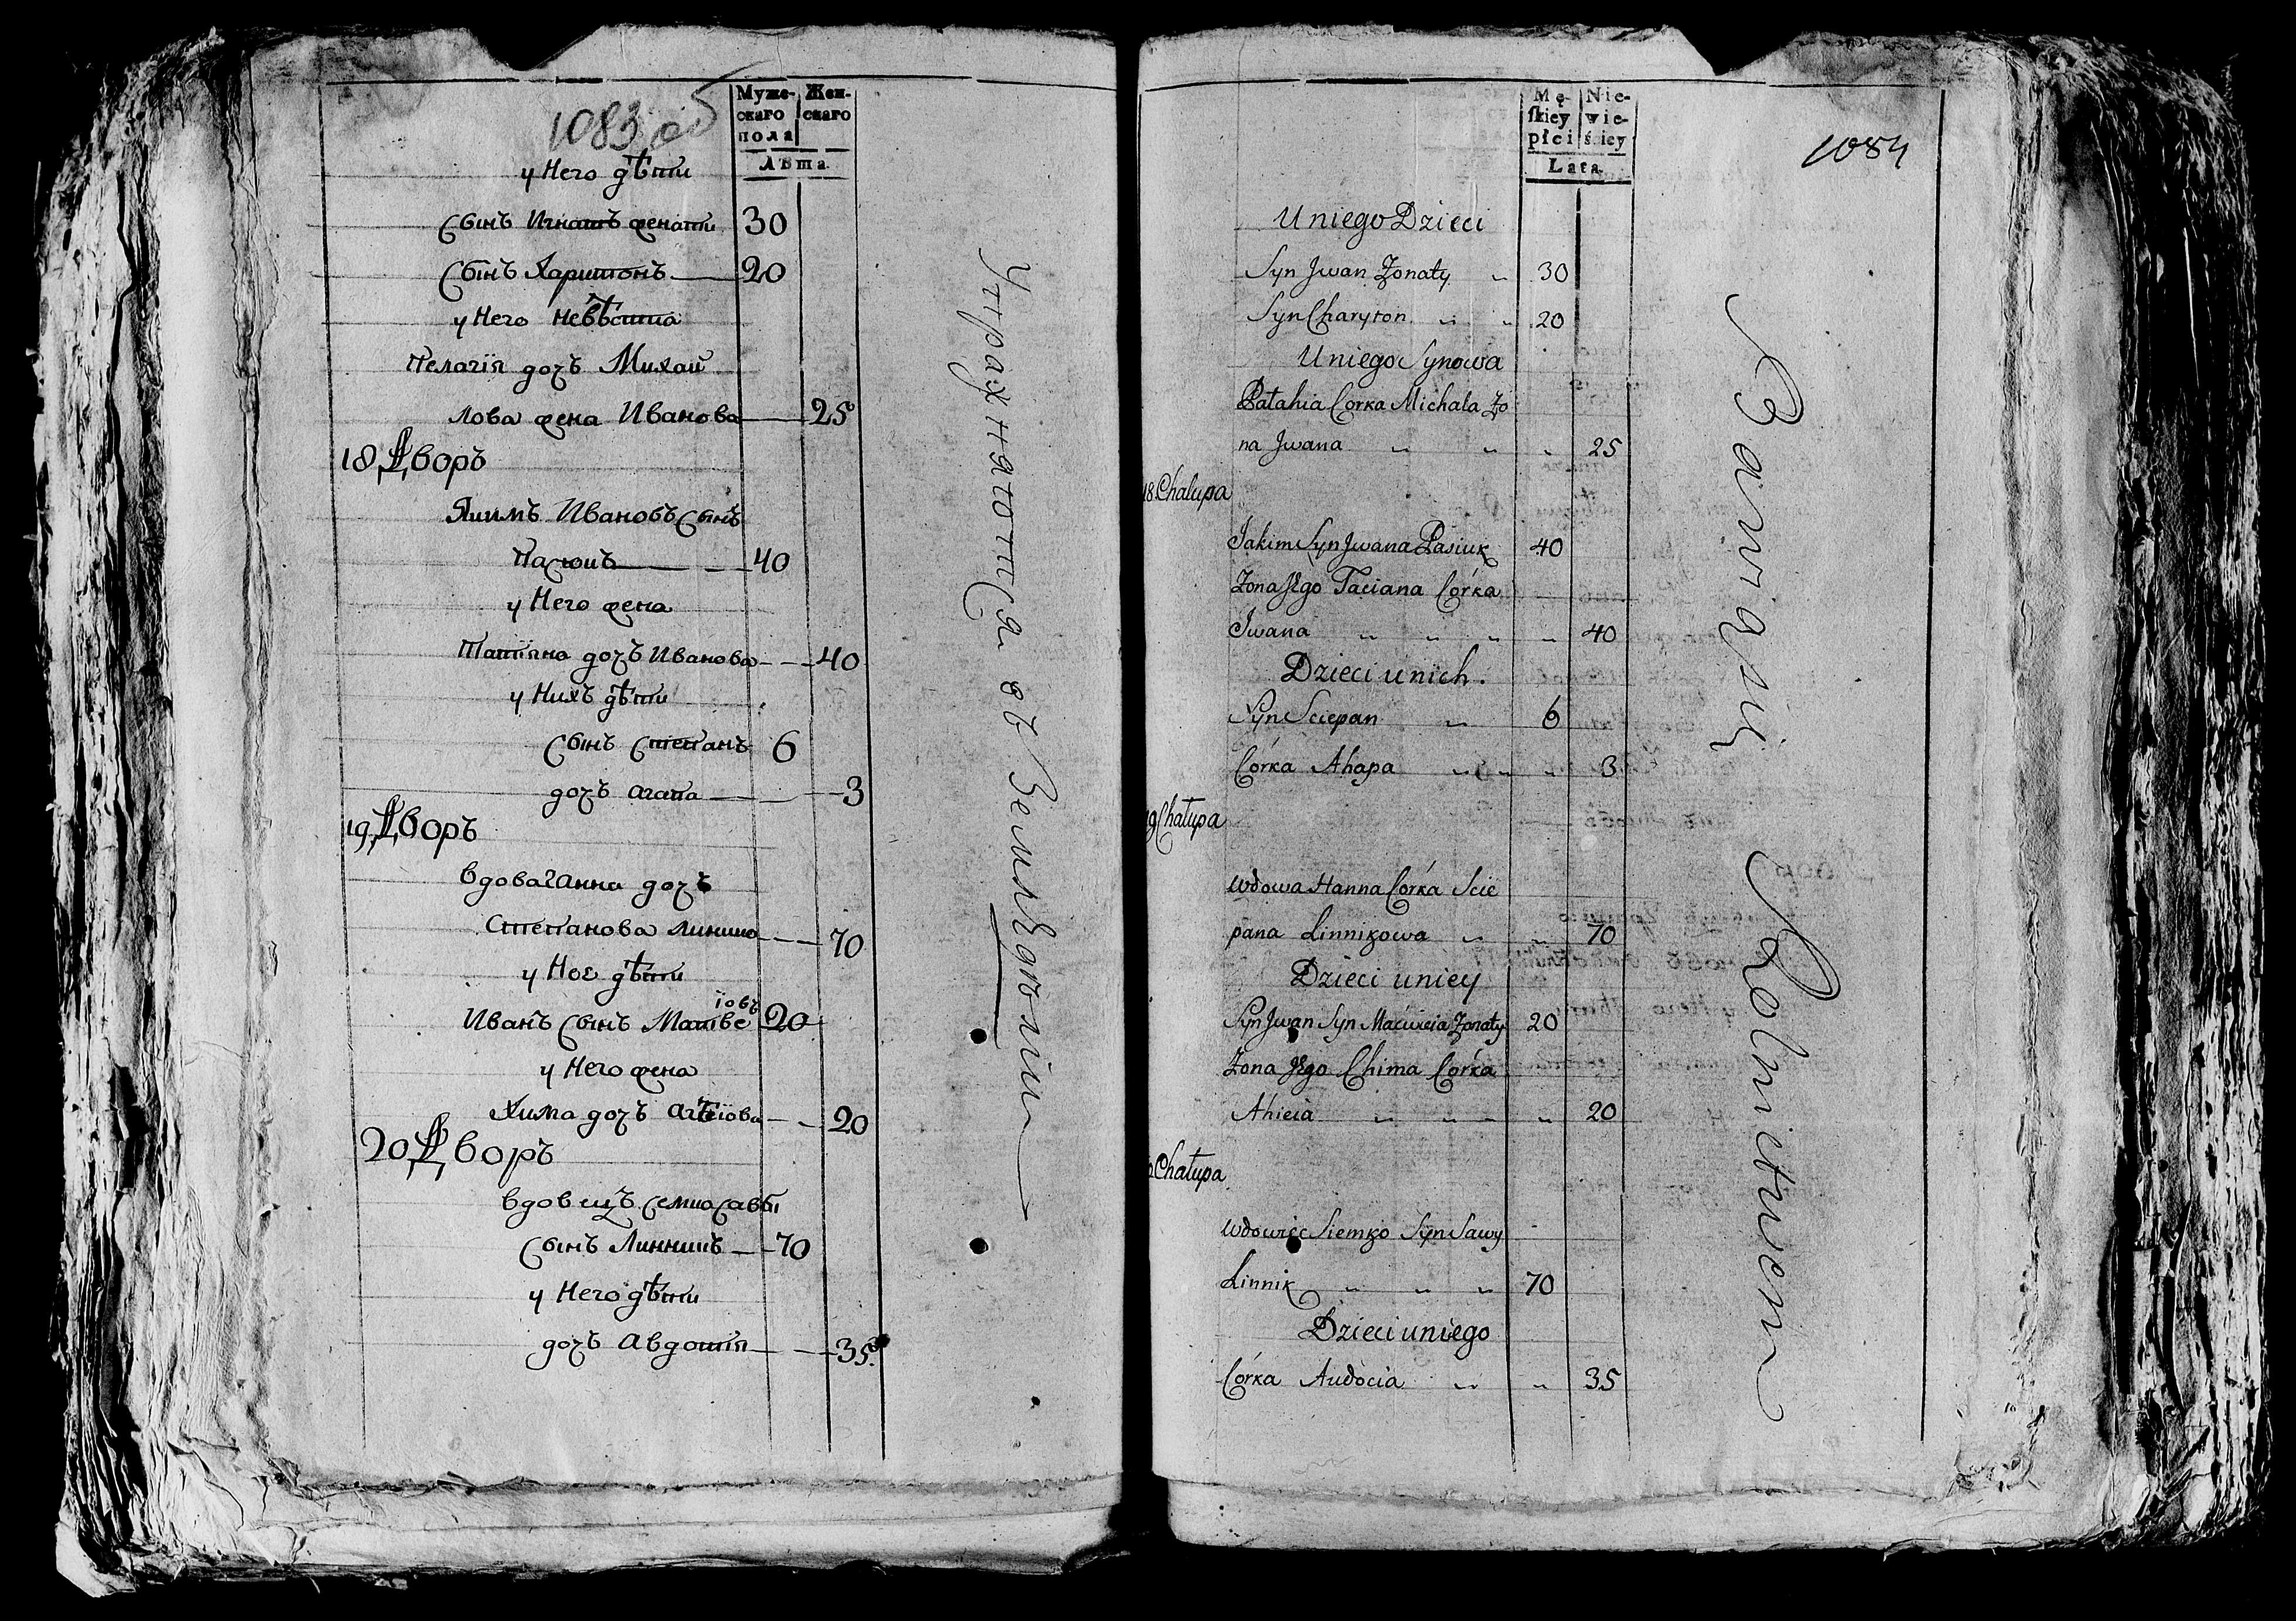 1083 об
Муже- Жен-
скаго скаго
пола
Лѣта
у Него дѣти
Сынъ Игнатъ женати 30
Сынъ Харитонъ 20
у Него невѣстка
Пелагія дочъ Михай
лова жена Иванова 25
18 Дворъ
Якимъ Ивановъ Сынъ
Пасюкъ 40
у Него жена
Татіяна дочъ Иванова 40
у Нихъ дѣти
Сынъ Степанъ 6
дочъ Агапа 3
19 Дворъ
вдова Ганна дочъ
Степанова Линико 70
у Ное дѣти
Иванъ Сынъ Матвеіовъ 20
у Него жена
Хима дочъ Агѣіова 20
20 Дворъ
вдовецъ Семко Савы
Сынъ Линникъ 70
у Него дѣти
дочъ Авдотія 35
Упражнятотся въ Земледѣліи
1084
Mę- Nie-
skiey wie-
płci ściey
Lata
U niego Dzieci
Syn Jwan Zonaty 30
Syn Charyton 20
U niego Synowa
Patahia Corka Michala Zo
na Jwana 25
18. Chalupa
Jakim Syn Jwana Pasiuk 40
Zona Jego Taciana Córka
Jwana 40
Dzieci u nich.
Syn Sciepan 6
Córka Ahapa 3
19 Chałupa
Wdowa Hanna Córka Scie
pana Linnikowa 70
Dzieci u niey
Syn Jwan Syn Maćwieia Zonaty 20
Zona Jego Chima Córka
Ahieia 20
Chałupa
Wdowiec Siemko Syn Sawy
Linnik 70
Dzieci u niego
Córka Audocia 35
Bawią się Rolnictwem